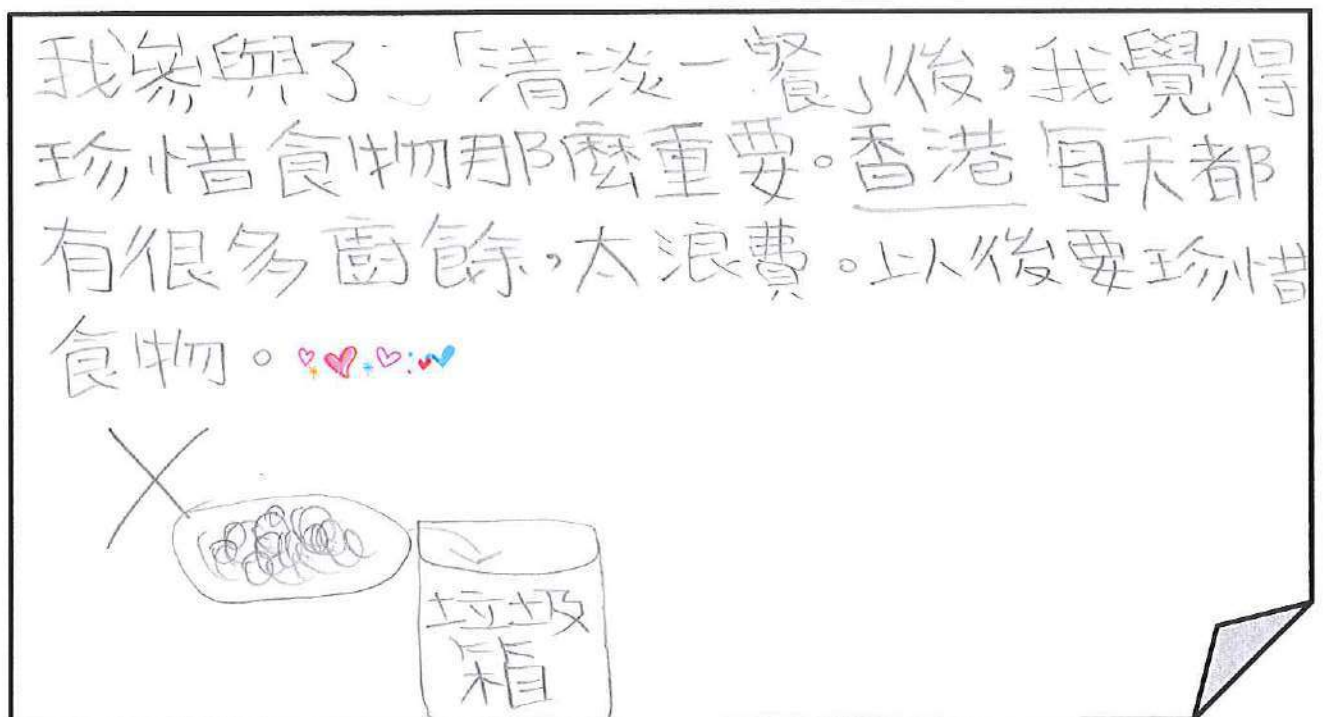 我參與了「清淡一餐」後,我覺得
珍惜食物那麼重要。香港每天都
有很多廚餘,太浪費。以後要珍惜
食物。
垃圾
箱